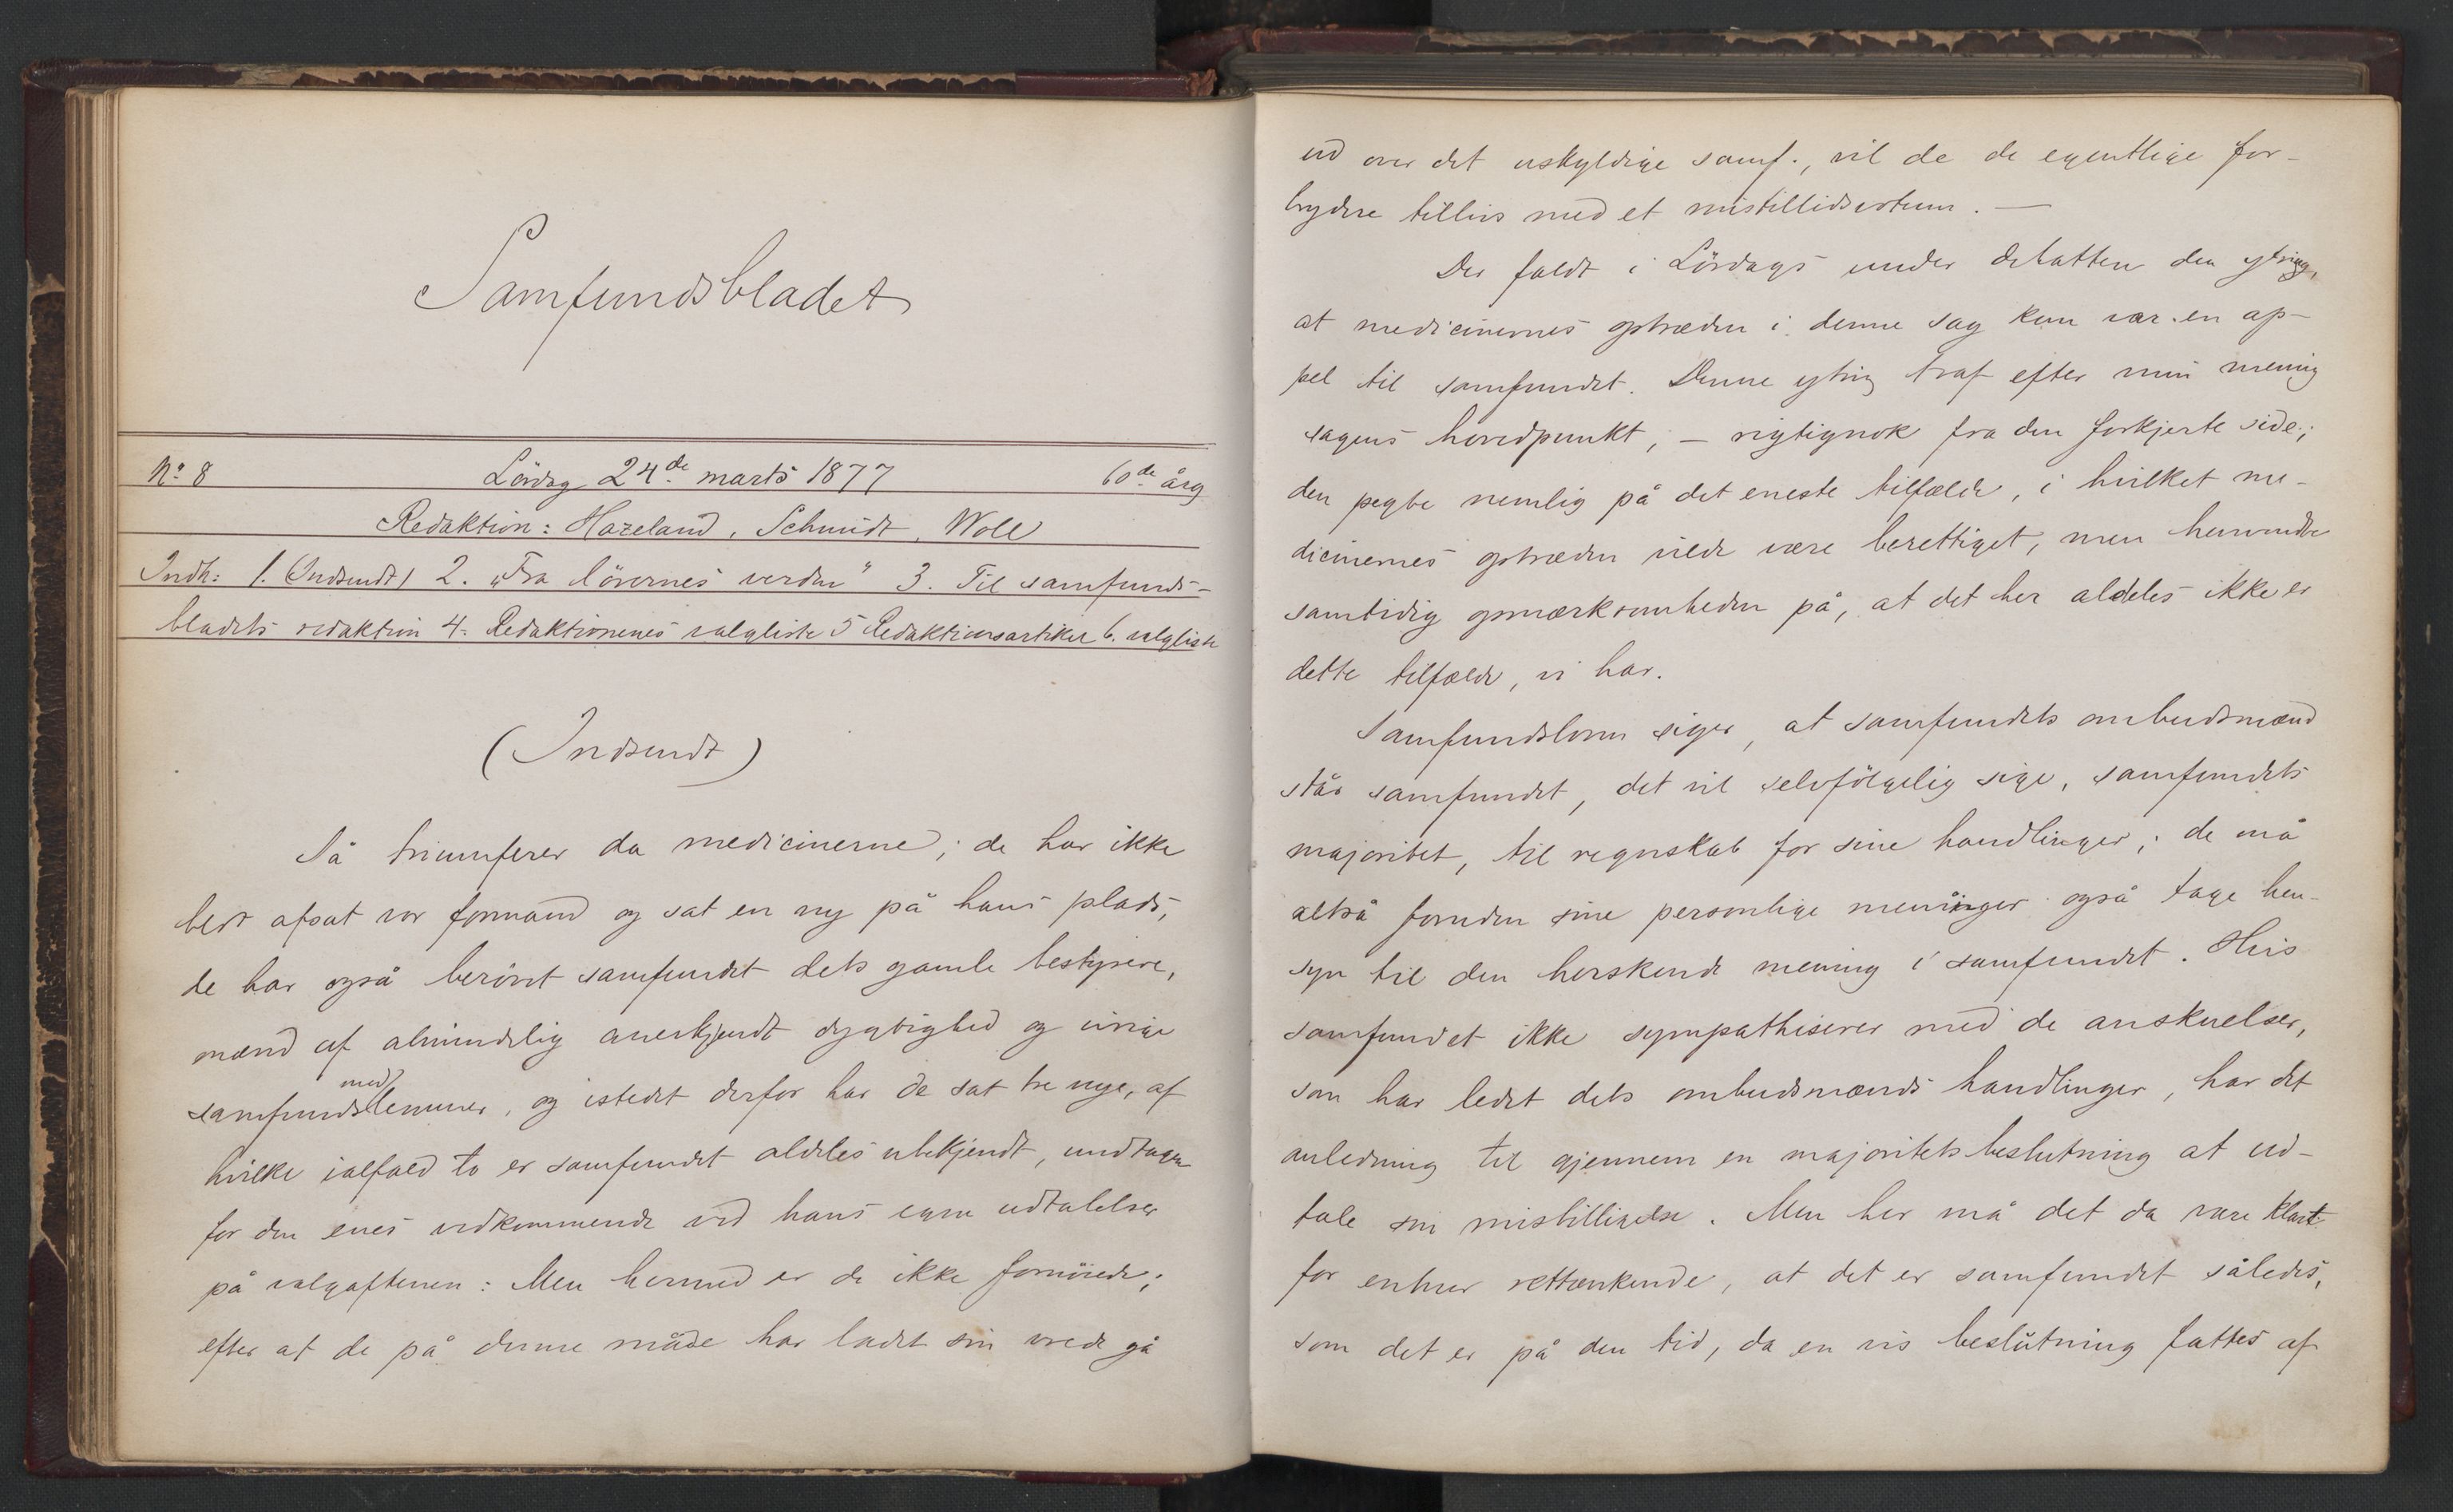 Samfundsbladet
No 8 Lördag 24de marts 1877 60de årg
Redaktion: Hazeland, Schmidt, Woll
Indh: 1. (Indsendt) 2. "Fra lövernes verden" 3. Til samfunds-
bladets redaktion 4. Redaktionenes valgliste 5 Redaktionsartikel 6. valgliste
(Indsendt)
Så triumferer da medicinerne; de har ikke
blot afsat vor formand og sat en ny på hans plads,
de har også berövet samfundet dets gamle bestyrere,
mænd af almindelig anerkjendt dygtighed og ivrige
samfundsmedlemmer, og istedet derfor har de sat tre nye, af
hvilke ialfald to er samfundet aldeles ubekjendt, undtagen
for den enes vedkommende ved hans egne udtalelser
på valgaftenen: Men hermed er de ikke fornöiede;
efter at de på denne måde har ladet sin vrede gå
ud over det uskyldige samf., vil de de egentlige for-
brydere tillivs med et mistillidsvotum. —
Der faldt i Lördags under debatten den ytring,
at medicinernes optræden i denne sag kun var en ap-
pel til samfundet. Denne ytring traf efter min mening
sagens hovedpunkt, — rigtignok fra den forkjerte side;
den pegte nemlig på det eneste tilfælde, i hvilket me-
dicinernes optræden vilde være berettiget, men henvendte
samtidig opmærksomheden på, at det her aldeles ikke er
dette tilfælde, vi har.
Samfundsloven siger, at samfundets ombudsmænd
står samfundet, det vil selvfölgelig sige, samfundets
majoritet, til regnskab for sine handlinger; de må
altså foruden sine personlige meninger også tage hen-
syn til den herskende mening i samfundet. Hvis
samfundet ikke sympathiserer med de anskuelser,
som har ledet dets ombudsmænds handlinger, har det
anledning til gjennem en majoritetsbeslutning at ud-
tale sin misbilligelse. Men her må det da være klart
for enhver rettænkende, at det er samfundet således,
som det er på den tid, da en vis beslutning fattes af